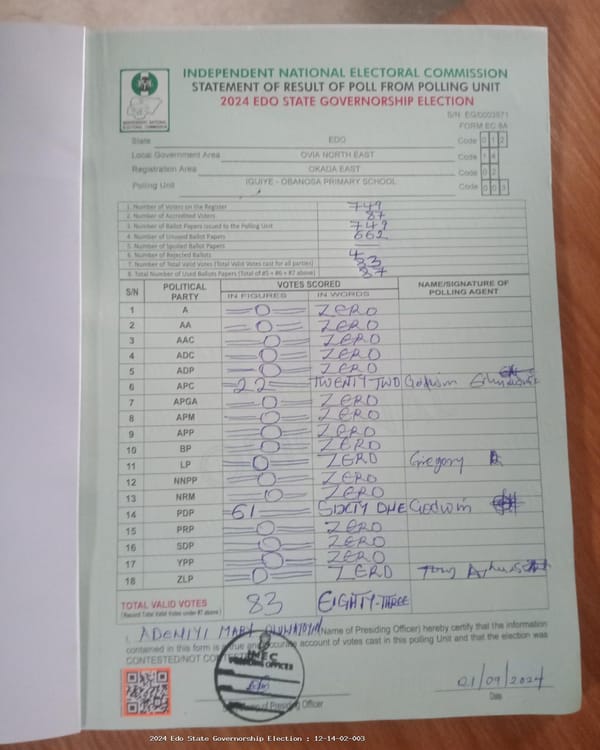 INDEPENDENT NATIONAL ELECTORAL COMMISSION
STATEMENT OF RESULT OF POLL FROM POLLING UNIT
2024 EDO STATE GOVERNORSHIP ELECTION
INDEPENDENT NATIONAL ELECTORAL COMMISSION
S/N: EG/0003971
FORM EC 8A
State EDO Code 0 1 2
Local Government Area OVIA NORTH EAST Code 1 4
Registration Area OKADA EAST Code 0 2
Polling Unit IGUIYE - OBANOSA PRIMARY SCHOOL Code 0 0 3
1. Number of Voters on the Register 749
2. Number of Accredited Voters 87
3. Number of Ballot Papers Issued to the Polling Unit 749
4. Number of Unused Ballot Papers 662
5. Number of Spoiled Ballot Papers
6. Number of Rejected Ballots 4
7. Number of Total Valid Votes (Total Valid Votes cast for all parties) 83
8. Total Number of Used Ballots Papers (Total of #5 + #6 + #7 above) 87
S/N POLITICAL PARTY VOTES SCORED NAME/SIGNATURE OF POLLING AGENT
IN FIGURES IN WORDS
1 A 0 ZERO
2 AA 0 ZERO
3 AAC 0 ZERO
4 ADC 0 ZERO
5 ADP 0 ZERO
6 APC 22 TWENTY TWO Godwin
7 APGA 0 ZERO
8 APM 0 ZERO
9 APP 0 ZERO
10 BP 0 ZERO
11 LP 0 ZERO Gregory
12 NNPP 0 ZERO
13 NRM 0 ZERO
14 PDP 61 SIXTY ONE Godwin
15 PRP 0 ZERO
16 SDP 0 ZERO
17 YPP 0 ZERO
18 ZLP 0 ZERO Tony
TOTAL VALID VOTES 83 EIGHTY-THREE
(Record Total Valid Votes under #7 above)
I, ADENIYI MARY (Name of Presiding Officer) hereby certify that the information
contained in this form is a true and accurate account of votes cast in this polling Unit and that the election was
CONTESTED/NOT CONTESTED
INEC
PRESIDING OFFICER
EDO
of Presiding Officer
21/09/2024
Date
2024 Edo State Governorship Election : 12-14-02-003